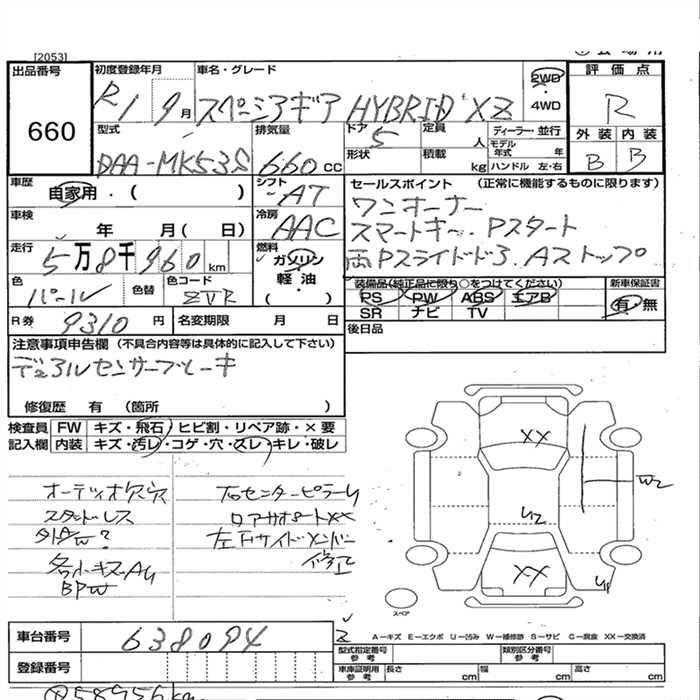 [2053]
出品番号 初度登録年月 車名・グレード 2WD 評価点
660
R1 9月 スペーシアギア HYBRID XZ ・ 4WD R
型式 排気量 ドア 5 定員 人 ディーラー・並行 外装 内装
DAA-MK53S 660cc 形状 積載 kg モデル年式 年 ハンドル 左・右 B B
車歴 自家用・( ) シフト AT セールスポイント (正常に機能するものに限ります)
ワンオーナー
車検 年 月( 日) 冷房 AAC スマートキー、Pスタート
走行 5万8千960km 燃料 ガソリン・軽油・( ) 両Pスライドドア、Aストップ
色 パール 色替 色コード ZVR 装備品(純正品に限り○をつけてください) 新車保証書
PS PW ABS エアB 有・無
R券 9310円 名変期限 月 日 SR ナビ TV
後日品
注意事項申告欄 (不具合内容等は具体的に記入して下さい)
デュアルセンサーブレーキ
修復歴 有 (箇所 )
検査員 FW キズ・飛石・ヒビ割・リペア跡・×要
記入欄 内装 キズ・汚レ・コゲ・穴・スレ・キレ・破レ
オーディオ欠穴 右センターピラーU
スタッドレス ロアサポートXX
外AW? 左右サイドメンバー
各小キズAU 修正
BPW
XX
W2
U2
XX
スペア
A-キズ E-エクボ U-凹み W-補修跡 S-サビ C-腐食 XX-交換済
車台番号 638094
型式指定番号 参考 類別区分番号 参考
登録番号 車庫証明用 参考 長さ cm 幅 cm 高さ cm
58956km